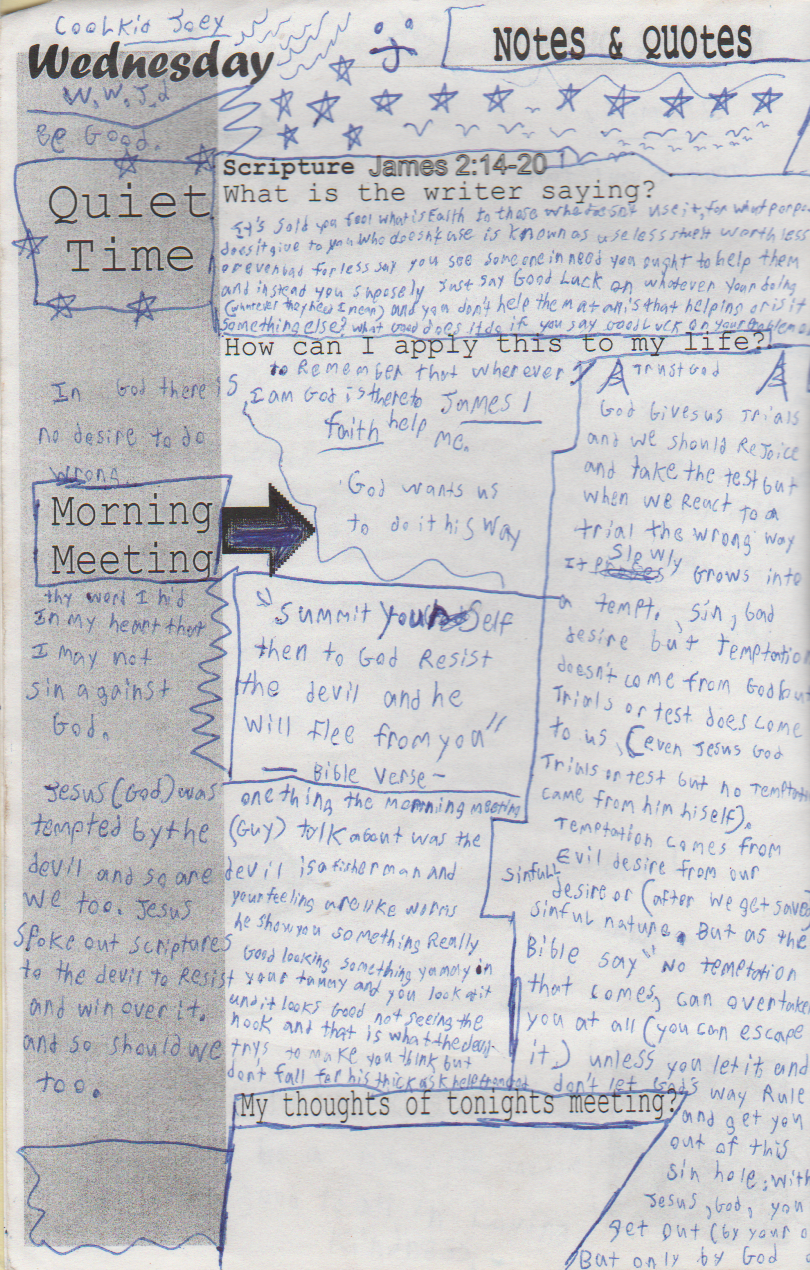 CoolKid Joey
Wednesday
Notes & Quotes
W.W.J.d
Be Good.
Quiet
Time
Scripture James 2:14-20
What is the writer saying?
It's sold you fool what is Faith to those who doesn't use it, for what
does it give to you who doesn't use is known as useless stuff worthless
or even bad for less say you see someone in need you ought to help them
and instead you suposely Just say Good Luck on whatever your doing
(whatever they need I mean) and you don't help them at all is that helping or is it
something else? what good does it do if you say good Luck on your
How can I apply this to my life?
to Remember that wherever
I am God is there to James 1
faith help
me.
God wants us
to do it his way
In God there is
no desire to do
wrong.
Morning
Meeting
thy word I hid
In my heart that
I may not
sin against
God.
Jesus (God) was
tempted by the
devil and so are
we too. Jesus
Spoke out scriptures
to the devil to Resist
and win over it.
and so should we
too.
"Summit your Self
then to God Resist
the devil and he
will flee from you"
— Bible Verse —
one thing the morning meeting
(Guy) talk about was the
devil is a fisherman and
your feeling are like worms
he show you something Really
Good looking something yummy in
your tummy and you look at it
und it looks Good not seeing the
hook and that is what the devil
trys to make you think but
don't fall for his thick ask help
Trust God
God Gives us Trials
and we should ReJoice
and take the test but
when we React to a
trial the wrong way
It Slowly Grows into
a tempt, sin, bad
desire but Temptation
doesn't come from God but
Trials or test does come
to us, (even Jesus God
Trials or test but no
came from him hiself).
Temptation comes from
Evil desire from our
sinful
desire or (after we get
sinful nature. But as the
Bible say "No temptation
that comes, can
you at all (you can escape
it.) unless you let it and
don't let God's way Rule
and get you
out of this
sin hole; with
Jesus, God, you
get out (by your
But only by God
My thoughts of tonights meeting?